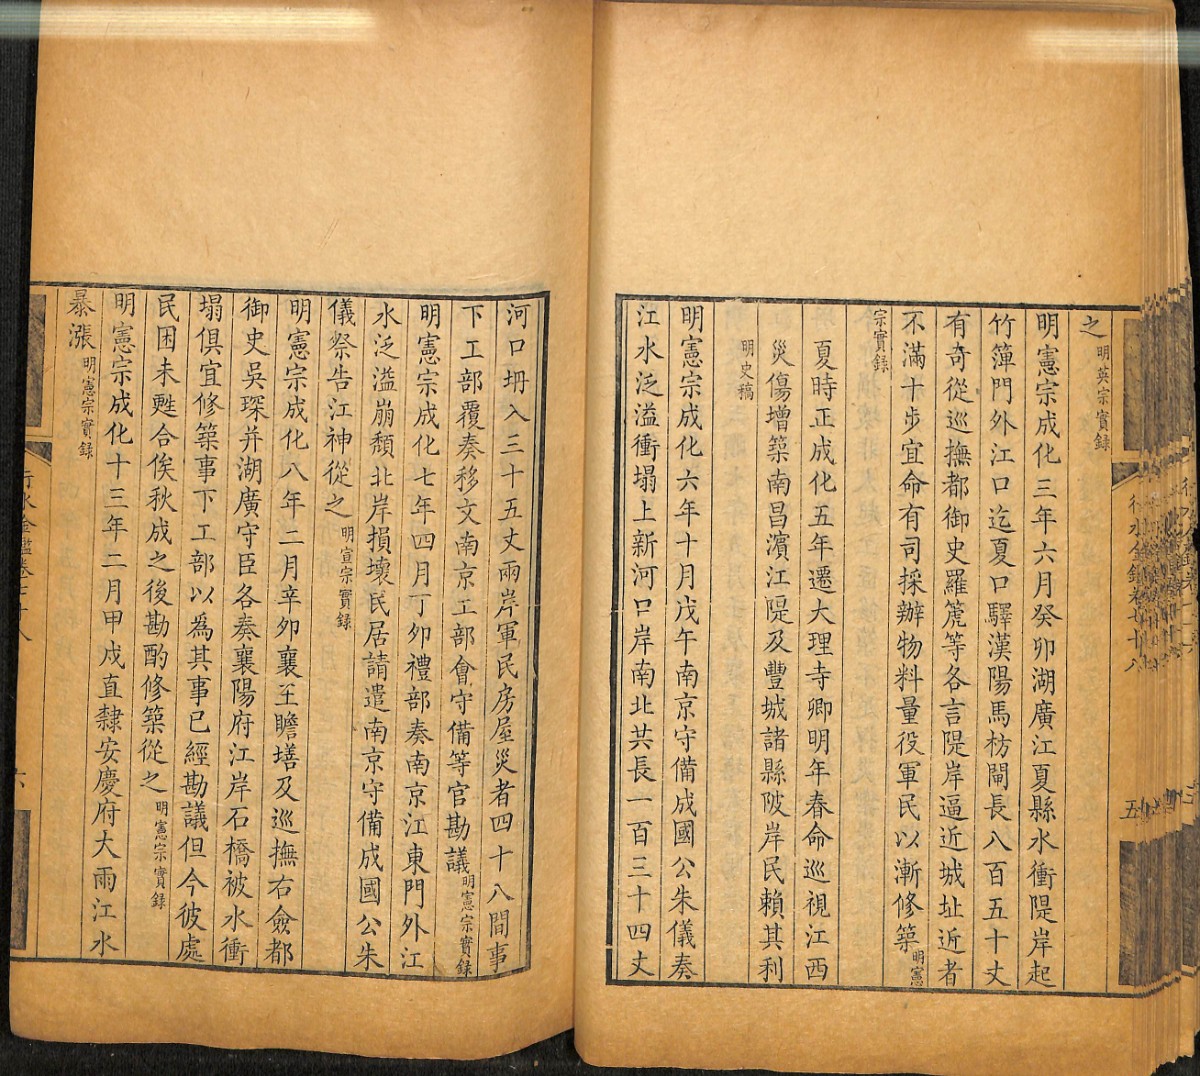 之明英宗實録
明憲宗成化三年六月癸卯湖廣江夏縣水衝隄岸起
竹簰門外江口迄夏口驛漢陽馬枋閘長八百五十丈
有奇從巡撫都御史羅篪等各言隄岸逼近城址近者
不滿十步宜命有司採辦物料量役軍民以漸修築明憲
宗實録
夏時正成化五年遷大理寺卿明年春命巡視江西
災傷增築南昌濱江隄及豐城諸縣陂岸民賴其利
明史稿
明憲宗成化六年十月戊午南京守備成國公朱儀奏
江水泛溢衝塌上新河口岸南北共長一百三十四丈
河口坍入三十五丈兩岸軍民房屋災者四十八間事
下工部覆奏移文南京工部會守備等官勘議明憲宗實録
明憲宗成化七年四月丁卯禮部奏南京江東門外江
水泛溢崩頽北岸損壞民居請遣南京守備成國公朱
儀祭告江神從之明宣宗實録
明憲宗成化八年二月辛卯襄王瞻墡及巡撫右僉都
御史吳琛并湖廣守臣各奏襄陽府江岸石橋被水衝
塌俱宜修築事下工部以為其事已經勘議但今彼處
民困未甦合俟秋成之後勘酌修築從之明憲宗實録
明憲宗成化十三年二月甲戍直隸安慶府大雨江水
暴漲明憲宗實録
行水金鑑卷七十八
六
行水金鑑卷七十八
五